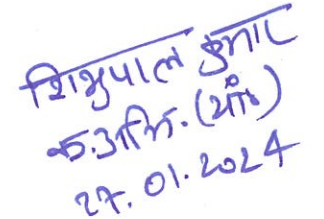 शिशुपाल कुमार
क.अभि.(यां०)
27.01.2024